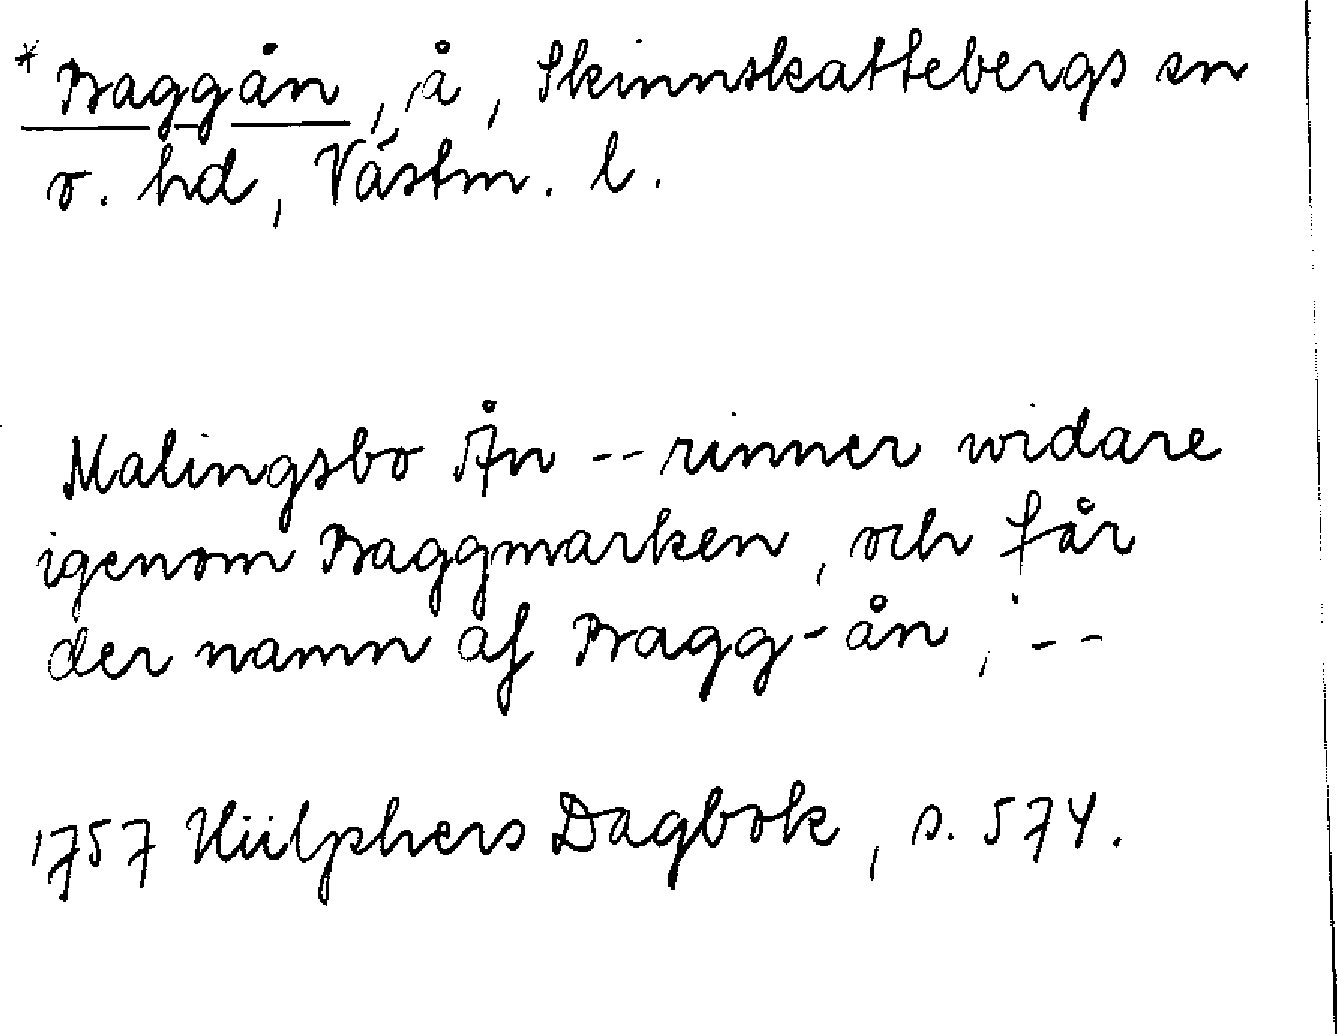 * Baggån, å, Skinnskattebergs sn
o. hd, Västm. l.
Malingsbo Ån -- rinner widare
igenom Baggmarken, och får
der namn af Bagg-ån, --
1757 Hülphers Dagbok, s. 574.